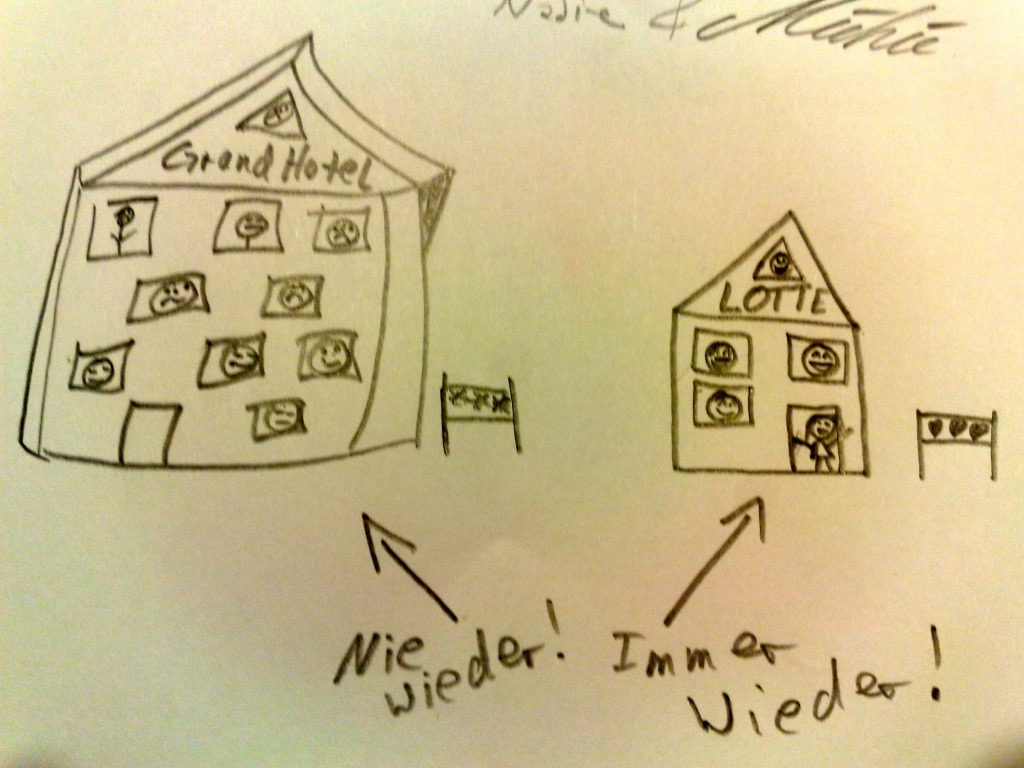 Nadine &
Grand Hotel
LOTTE
Nie
wieder!
Immer
Wieder!